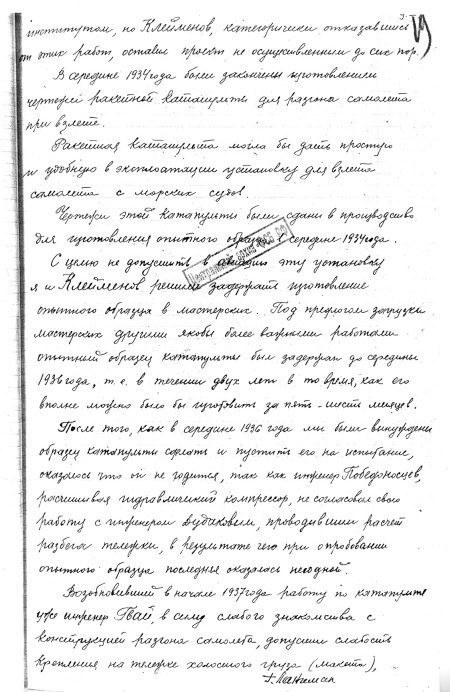 3.
институтом, но Клейменов, категорически отказавшись
от этих работ, оставив проект не осуществленным до сих пор.
В середине 1934 года были закончены изготовлением
чертежи ракетной катапульты для разгона самолета
при взлете.
Ракетная катапульта могла бы дать простую
и удобную в эксплоатации установку для взлета
самолета с морских судов.
Чертежи этой катапульты были сданы в производство
для изготовления опытного образца в середине 1934 года.
Центральный архив ФСБ РФ
С целью не допустить в авиацию эту установку
я и Клейменов решили задержать изготовление
опытного образца в мастерских. Под предлогом загрузки
мастерских другими якобы более важными работами
опытный образец катапульты был задержан до середины
1936 года, т.е. в течении двух лет в то время, как его
вполне можно было бы изготовить за пять-шесть месяцев.
После того, как в середине 1936 года мы были вынуждены
образец катапульты сделать и пустить его на испытание,
оказалось что он не годится, так как инженер Победоносцев,
рассчитывая гидравлический компрессор, не согласовал свою
работу с инженером Дудаковым, проводившим расчет
разбега тележки, в результате чего при опробовании
опытного образца последнее оказалось негодной.
Возобновивший в начале 1937 года работу по катапульте
уже инженер Гвай, в силу слабого знакомства с
конструкцией разгона самолета, допустил слабость
крепления на тележке холостого груза (макета),
Г. Лангемак